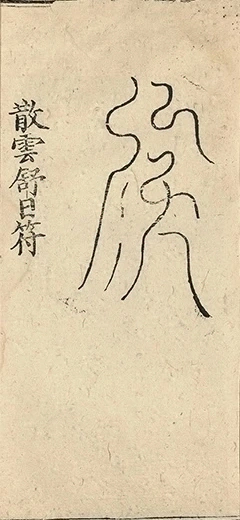 散雲舒日符